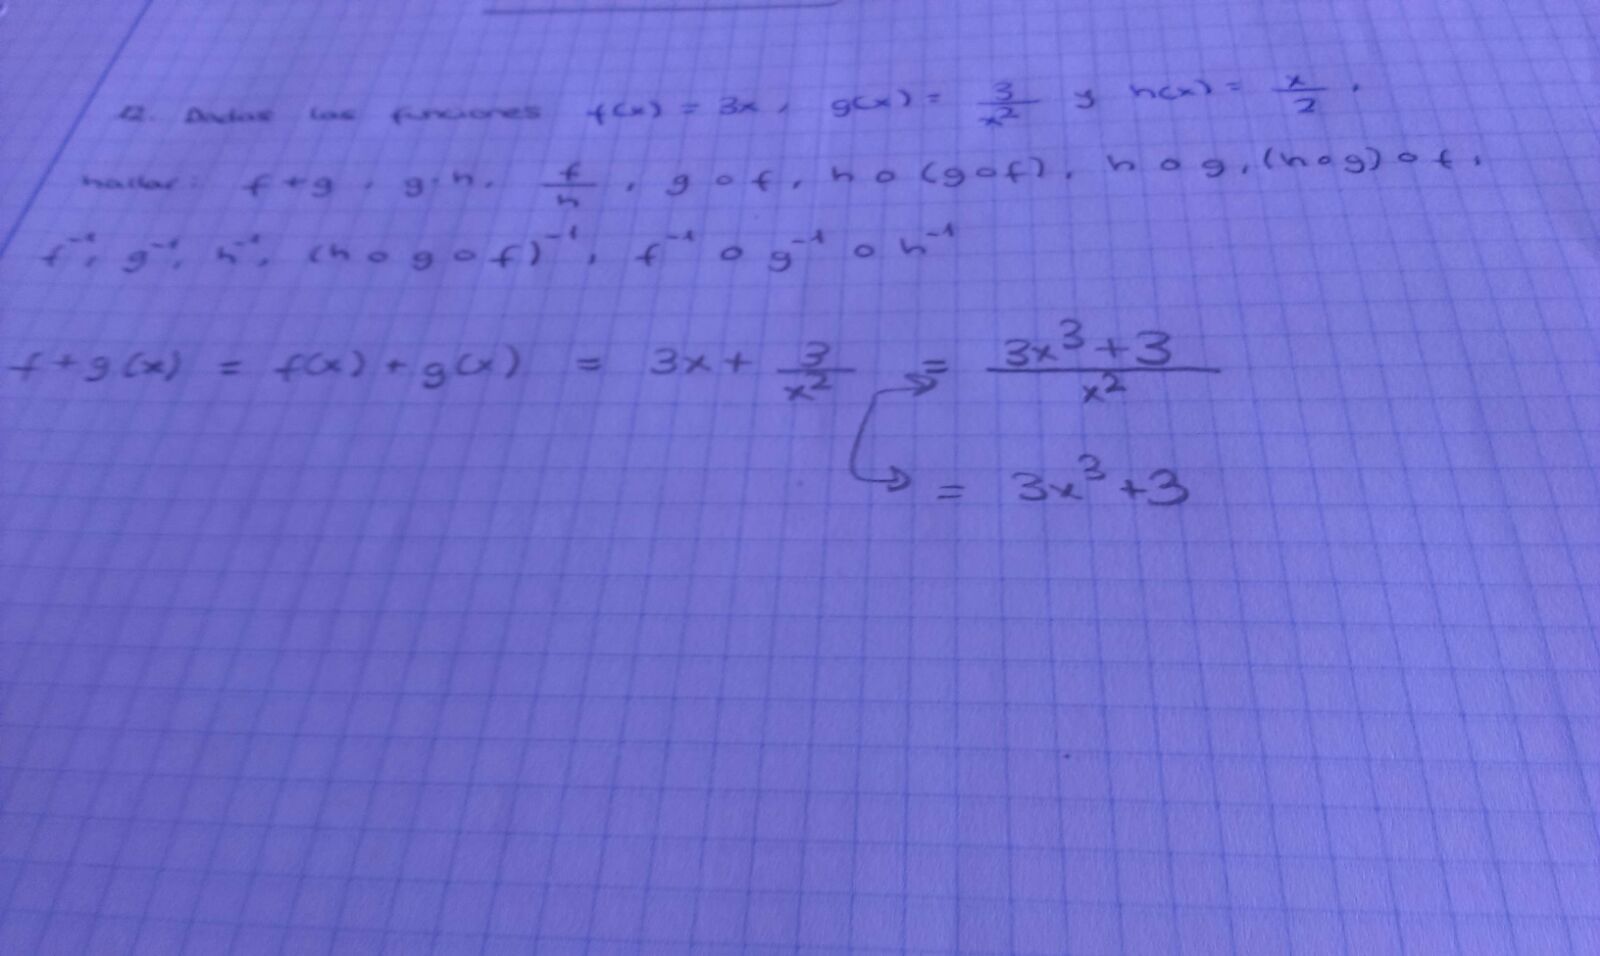 12. Dadas las funciones f(x) = 3x, g(x) = 3/x² y h(x) = x/2,
hallar: f+g, g·h, f/h, g∘f, h∘(g∘f), h∘g, (h∘g)∘f,
f⁻¹, g⁻¹, h⁻¹, (h∘g∘f)⁻¹, f⁻¹∘g⁻¹∘h⁻¹
f+g(x) = f(x) + g(x) = 3x + 3/x² = (3x³+3)/x²
= 3x³+3